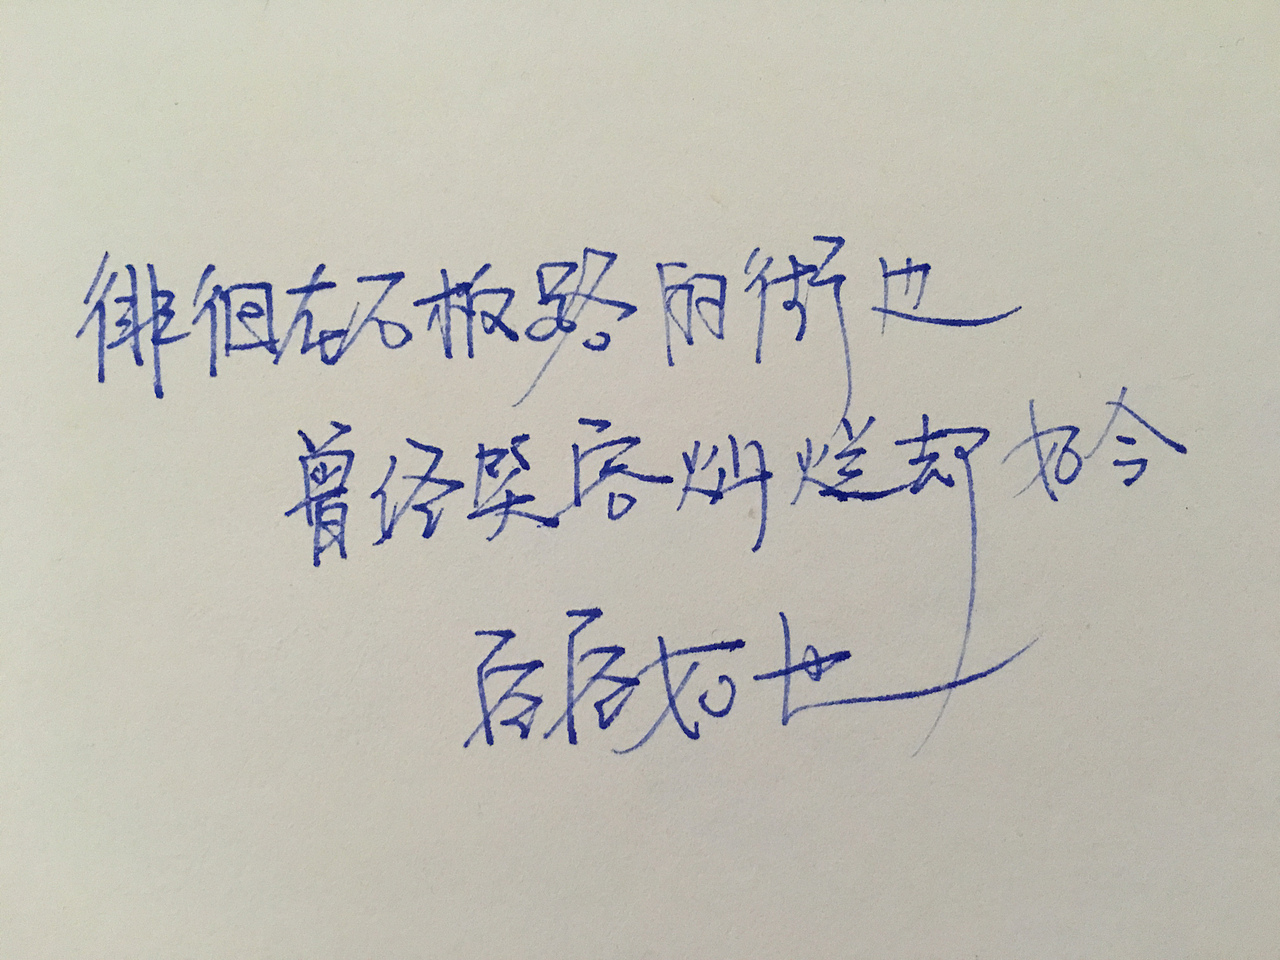 徘徊在石板路的街边
曾经笑容灿烂却如今
后后如也